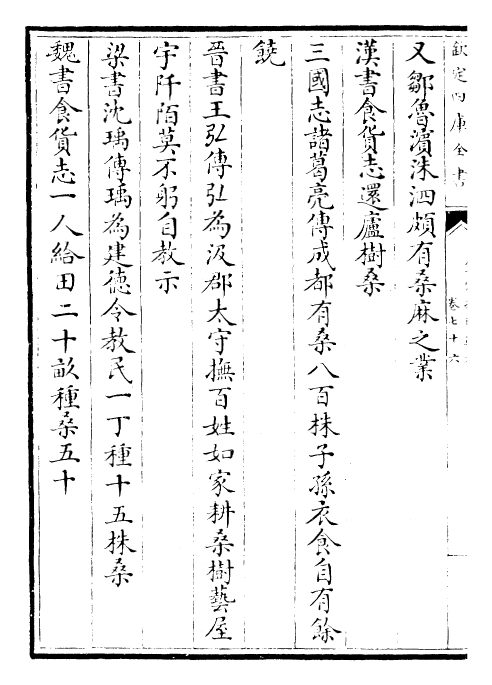 欽定四庫全書
卷七十六
又鄒魯濱洙泗頗有桑麻之業
漢書食貨志還廬樹桑
三國志諸葛亮傳成都有桑八百株子孫衣食自有餘
饒
晉書王弘傳弘為汲郡太守撫百姓如家耕桑樹藝屋
宇阡陌莫不躬自教示
梁書沈瑀傳瑀為建德令教民一丁種十五株桑
魏書食貨志一人給田二十畝種桑五十